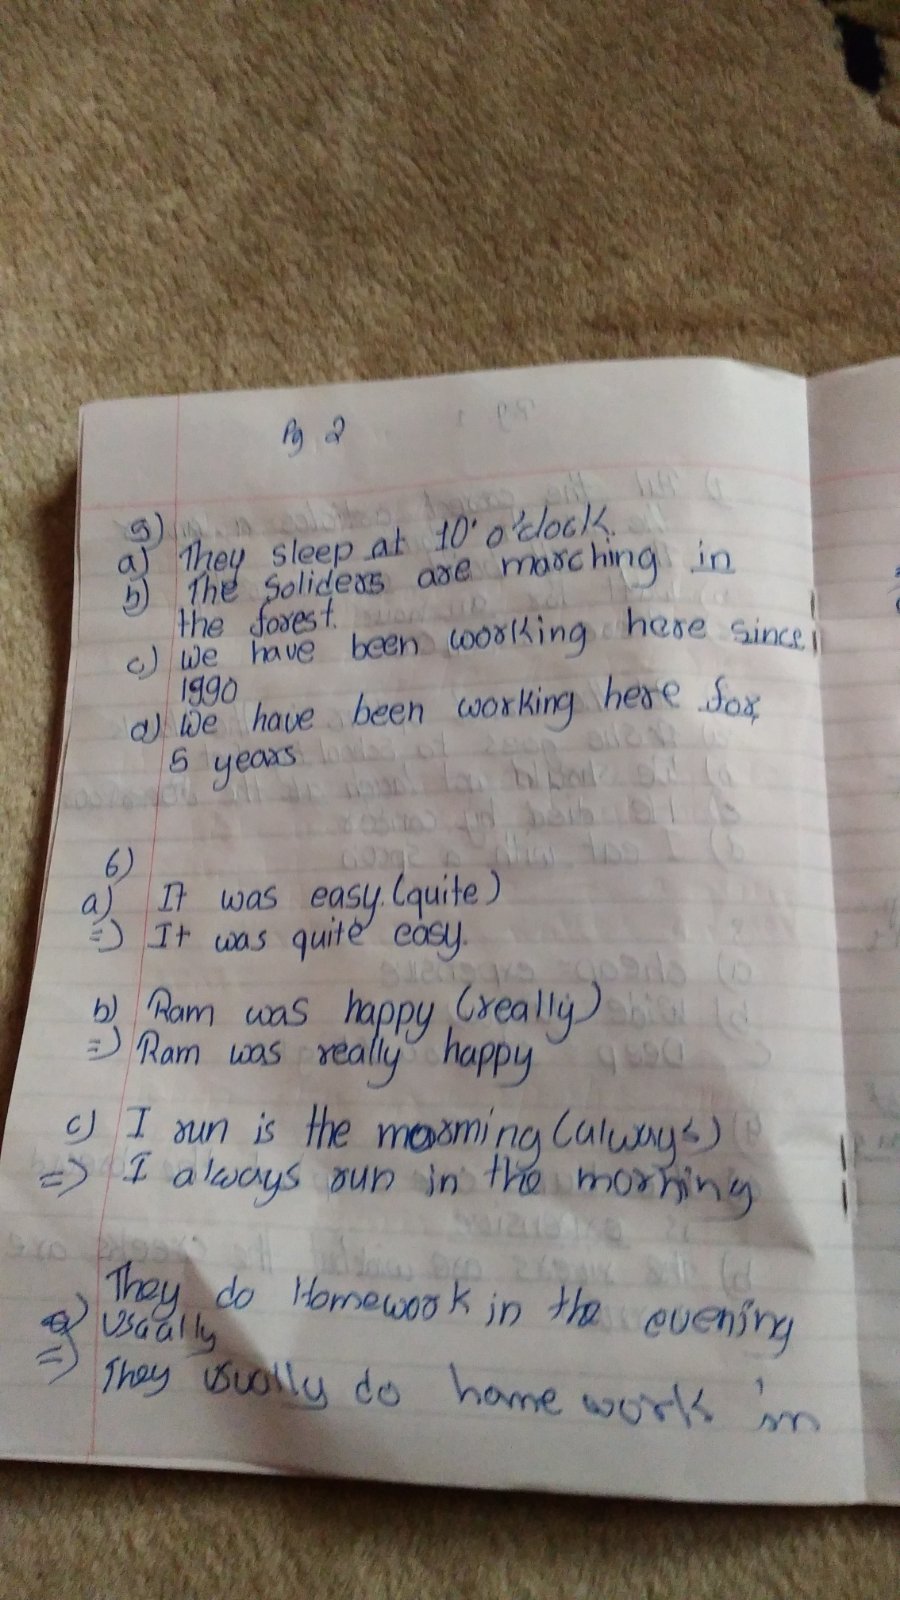 Pg 2
5)
a) They sleep at 10' o'clock.
b) The Soliders are marching in
the forest.
c) We have been working here since
1990
d) We have been working here for
5 years
6)
a) It was easy. (quite)
=) It was quite easy.
b) Ram was happy (really)
=) Ram was really happy
c) I run is the morming (always)
=> I always run in the morning
They do Homework in the evening
Usually
=) They usually do home work in